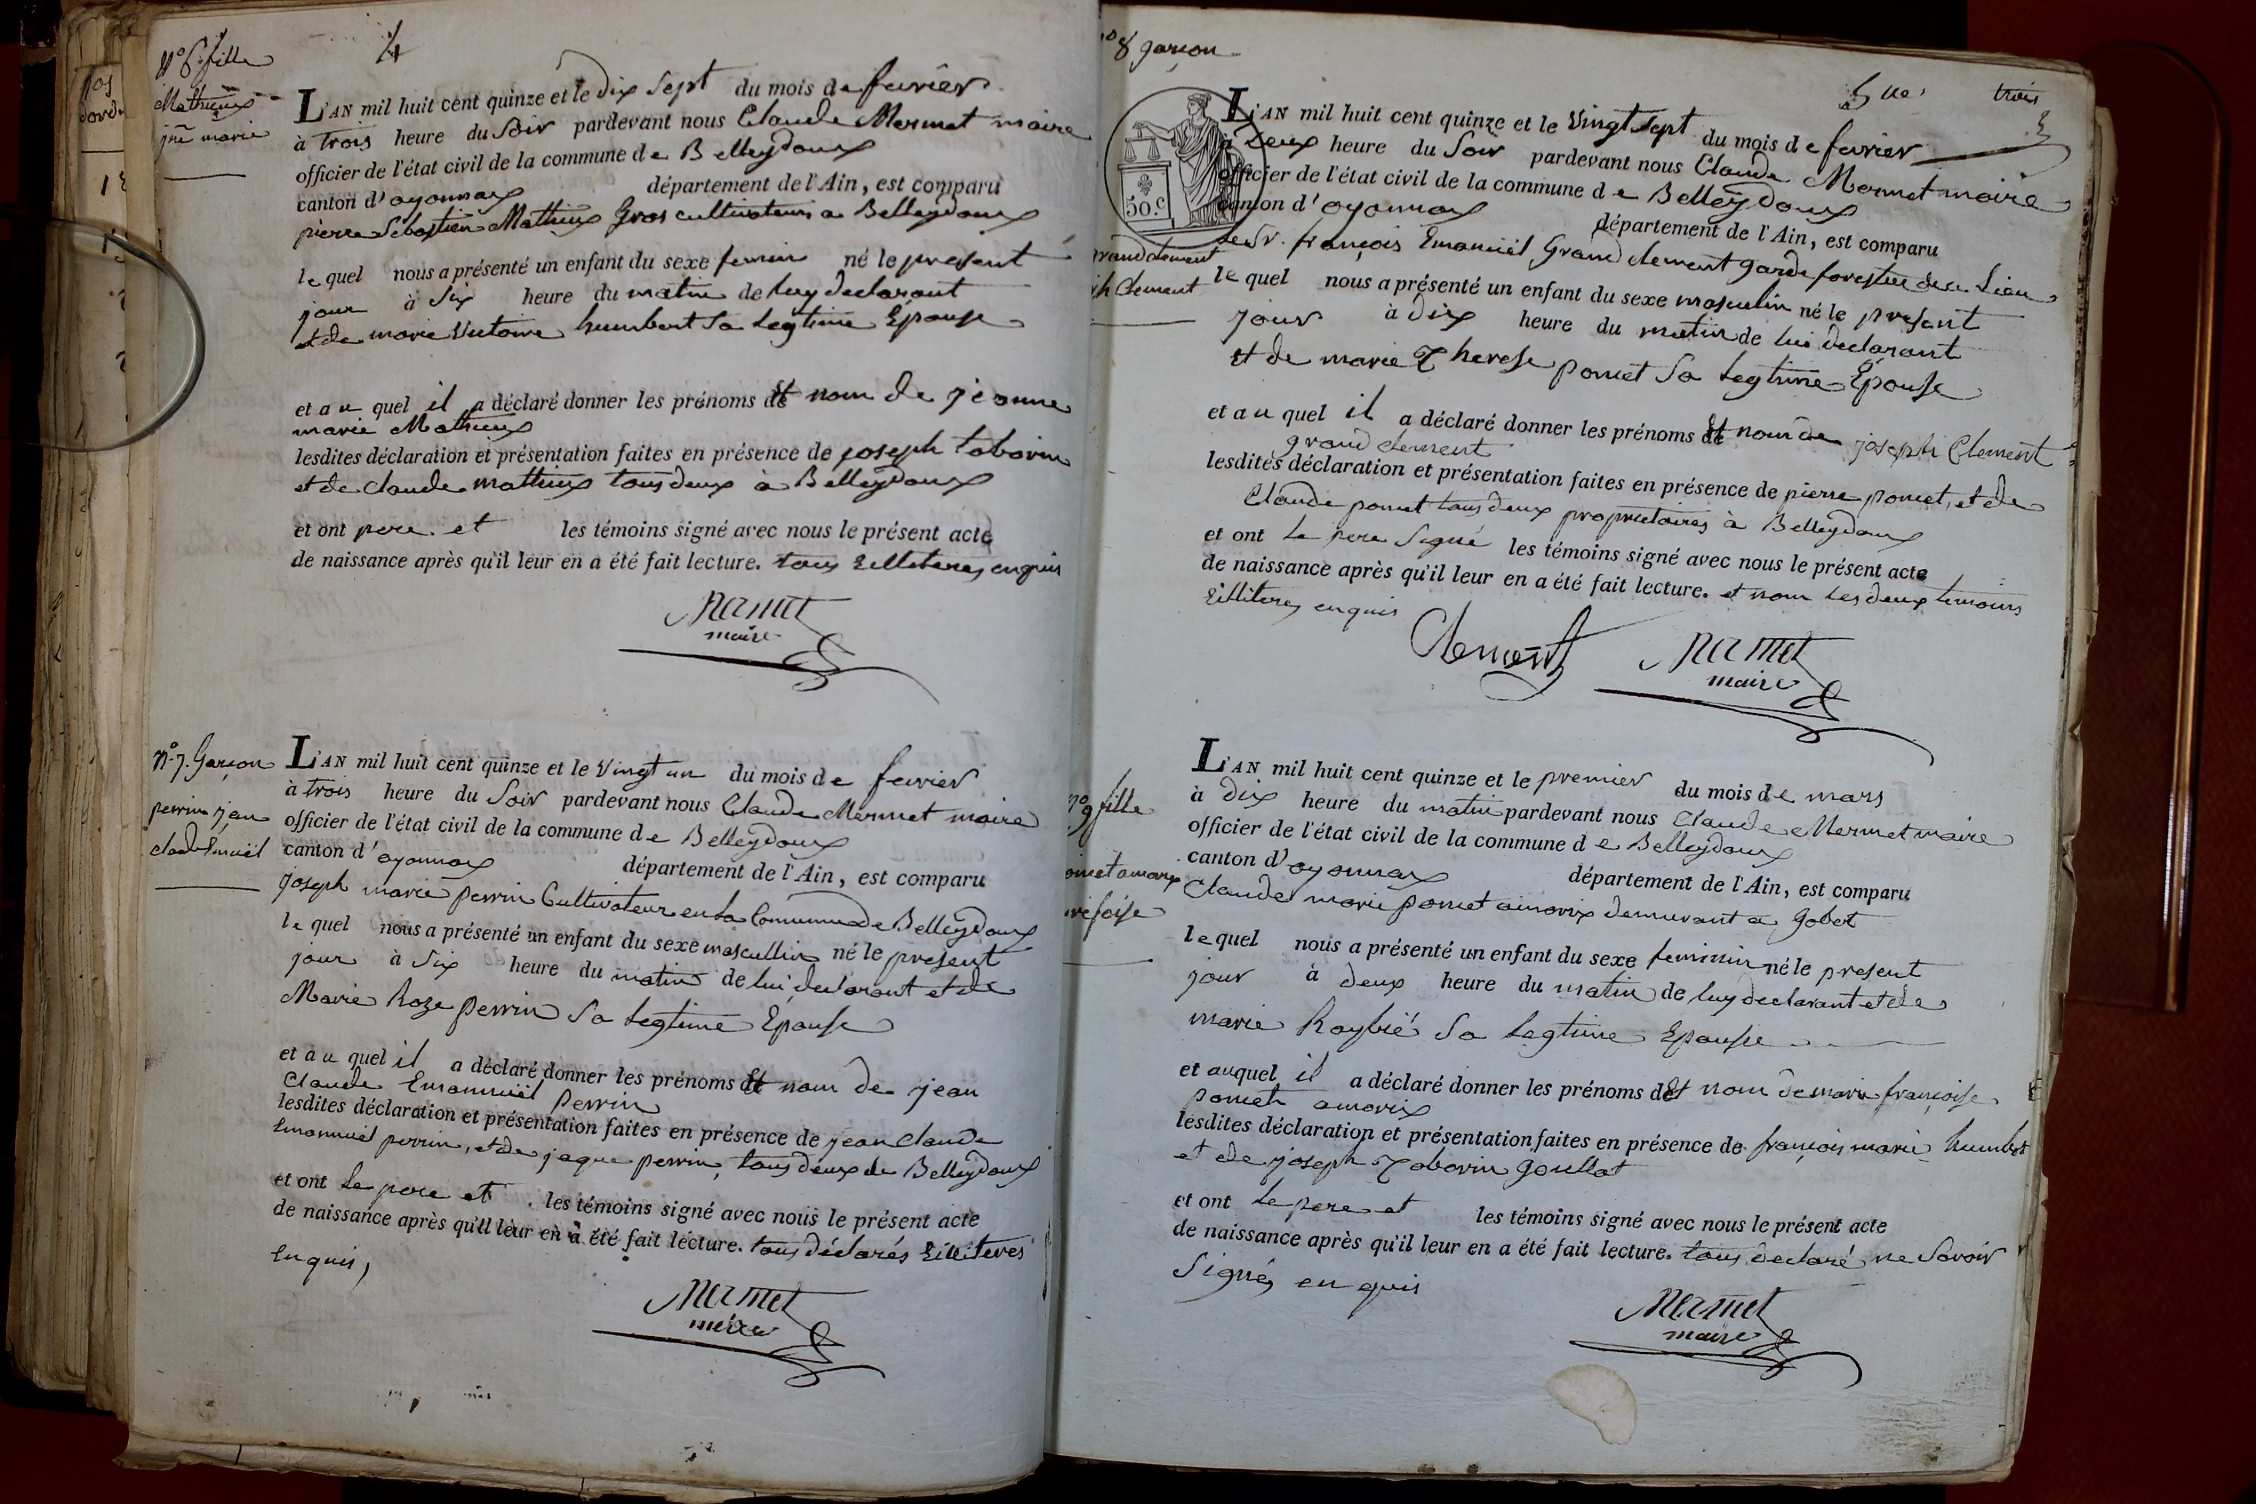 4
N.° 6. fille
Mathieux
jne marie
L'AN mil huit cent quinze et le dix sept du mois de fevrier
à trois heure du Soir pardevant nous Claude Mermet maire
officier de l'état civil de la commune de Belleydoux
canton d'oyonnax département de l'Ain, est comparu
pierre Sébastien Mathieux Gros cultivateur a Belleydoux
lequel nous a présenté un enfant du sexe feminin né le present
jour à Six heure du matin de luy declarant
et de marie Victoire humbert Sa Legtime Epouse
et au quel il a déclaré donner les prénoms de Et nom de jeanne
marie Mathieux
lesdites déclaration et présentation faites en présence de joseph taborin
et de claude mathieux tous deux à Belleydoux
et ont pere et les témoins signé avec nous le présent acte
de naissance après qu'il leur en a été fait lecture. tous Eilliteres enquis
Mermet
maire
N.° 7. Garçon
perrin jean
claude Emuël
L'AN mil huit cent quinze et le Vingt un du mois de fevrier
à trois heure du Soir pardevant nous Claude Mermet maire
officier de l'état civil de la commune de Belleydoux
canton d'oyonnax département de l'Ain, est comparu
joseph marie perrin Cultivateur en La Commune de Belleydoux
lequel nous a présenté un enfant du sexe mascullin né le present
jour à Six heure du matin de lui declarant et de
Marie Roze perrin Sa Legtime Epouse
et au quel il a déclaré donner les prénoms de Et nom de jean
Claude Emannuël perrin
lesdites déclaration et présentation faites en présence de jean claude
Emannuël perrin, et de jaque perrin tous deux de Belleydoux
et ont Le pere et les témoins signé avec nous le présent acte
de naissance après qu'il leur en a été fait lecture. tous déclarés Eilliteres
Enquis,
Mermet
maire
n° 8 garçon
5 trois
50.C
grandclement
ph Clement
L'AN mil huit cent quinze et le Vingt Sept du mois de fevrier
à Deux heure du Soir pardevant nous Claude Mermet maire
officier de l'état civil de la commune de Belleydoux
canton d'oyonnax département de l'Ain, est comparu
Le Sr. françois Emanuël Grand clement garde forestier du Lieu
lequel nous a présenté un enfant du sexe masculin né le present
jour à dix heure du matin de lui declarant
et de marie Therese poncet Sa Legtime Epouse
et au quel il a déclaré donner les prénoms de Et nom de joseph Clement
grand clement
lesdites déclaration et présentation faites en présence de pierre poncet, et de
Claude poncet tous deux proprietaires à Belleydoux
et ont Le pere Signé les témoins signé avec nous le présent acte
de naissance après qu'il leur en a été fait lecture. et nom Les deux temoins
Eilliteres enquis
Clement
Mermet
maire
N° 9 fille
poncet amarix
L'AN mil huit cent quinze et le premier du mois de mars
à dix heure du matin pardevant nous Claude Mermet maire
officier de l'état civil de la commune de Belleydoux
canton d'oyonnax département de l'Ain, est comparu
Claude marie poncet amarix demeurant a gobet
lequel nous a présenté un enfant du sexe feminin né le present
jour à deux heure du matin de luy declarant et de
marie Raybié Sa Legtime Epouse
et auquel il a déclaré donner les prénoms de Et nom de marie françoise
poncet amarix
lesdites déclaration et présentation faites en présence de françois marie humbert
et de joseph Taborin goullat
et ont Le pere et les témoins signé avec nous le présent acte
de naissance après qu'il leur en a été fait lecture. tous declaré ne Savoir
Signés enquis
Mermet
maire